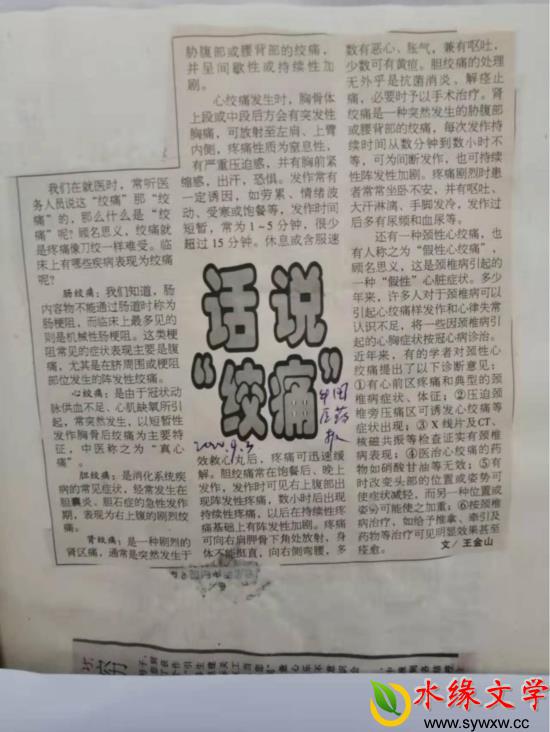 我们在就医时，常听医
务人员说这“绞痛”那“绞
痛”的，那么什么是“绞
痛”呢？顾名思义，绞痛就
是疼痛像刀绞一样难受。临
床上有哪些疾病表现为绞痛
呢？
肠绞痛：我们知道，肠
内容物不能通过肠道时称为
肠梗阻，而临床上最多见的
则是机械性肠梗阻。这类梗
阻常见的症状表现主要是腹
痛，尤其是在脐周围或梗阻
部位发生的阵发性绞痛。
心绞痛：是由于冠状动
脉供血不足、心肌缺氧所引
起，常突然发生，以短暂性
发作胸骨后绞痛为主要特
征，中医称之为“真心
痛”。
胆绞痛：是消化系统疾
病的常见症状，经常发生在
胆囊炎、胆石症的急性发作
期，表现为右上腹的剧烈绞
痛。
肾绞痛：是一种剧烈的
肾区痛，通常是突然发生于
胁腹部或腰背部的绞痛，
并呈间歇性或持续性加
剧。
心绞痛发生时，胸骨体
上段或中段后方会有突发性
胸痛，可放射至左肩、上臂
内侧，疼痛性质为窒息性，
有严重压迫感，并有胸前紧
缩感，出汗，恐惧。发作常有
一定诱因，如劳累、情绪波
动、受寒或饱餐等，发作时间
短暂，常为1~5分钟，很少
超过15分钟。休息或含服速
话说
“绞痛”
2020.9.3
中国
医药
报
效救心丸后，疼痛可迅速缓
解。胆绞痛常在饱餐后、晚上
发作，发作时可见右上腹部出
现阵发性疼痛，数小时后出现
持续性疼痛，以后在持续性疼
痛基础上有阵发性加剧。疼痛
可向右肩胛骨下角处放射，身
体不能挺直，向右侧弯腰，多
数有恶心、胀气，兼有呕吐，
少数可有黄疸。胆绞痛的处理
无外乎是抗菌消炎、解痉止
痛，必要时予以手术治疗。肾
绞痛是一种突然发生的胁腹部
或腰背部的绞痛，每次发作持
续时间从数分钟到数小时不
等，可为间断发作，也可持续
性阵发性加剧。疼痛剧烈时患
者常常坐卧不安，并有呕吐、
大汗淋漓、手脚发冷，发作过
后多有尿频和血尿等。
还有一种颈性心绞痛，也
有人称之为“假性心绞痛”，
顾名思义，这是颈椎病引起的
一种“假性”心脏症状。多少
年来，许多人对于颈椎病可以
引起心绞痛样发作和心律失常
认识不足，将一些因颈椎病引
起的心胸症状按冠心病诊治。
近年来，有的学者对颈性心
绞痛提出了以下诊断意见：
①有心前区疼痛和典型的颈
椎病症状、体征；②压迫颈
椎旁压痛区可诱发心绞痛等
症状出现；③X线片及CT、
核磁共振等检查证实有颈椎
病表现；④医治心绞痛的药
物如硝酸甘油等无效；⑤有
时改变头部的位置或姿势可
使症状减轻，而另一种位置或
姿势可能使之加重；⑥按颈椎
病治疗，如给予推拿、牵引及
药物等治疗可见明显效果甚至
痊愈。
文／王金山
水缘文学
www.sywxw.cc